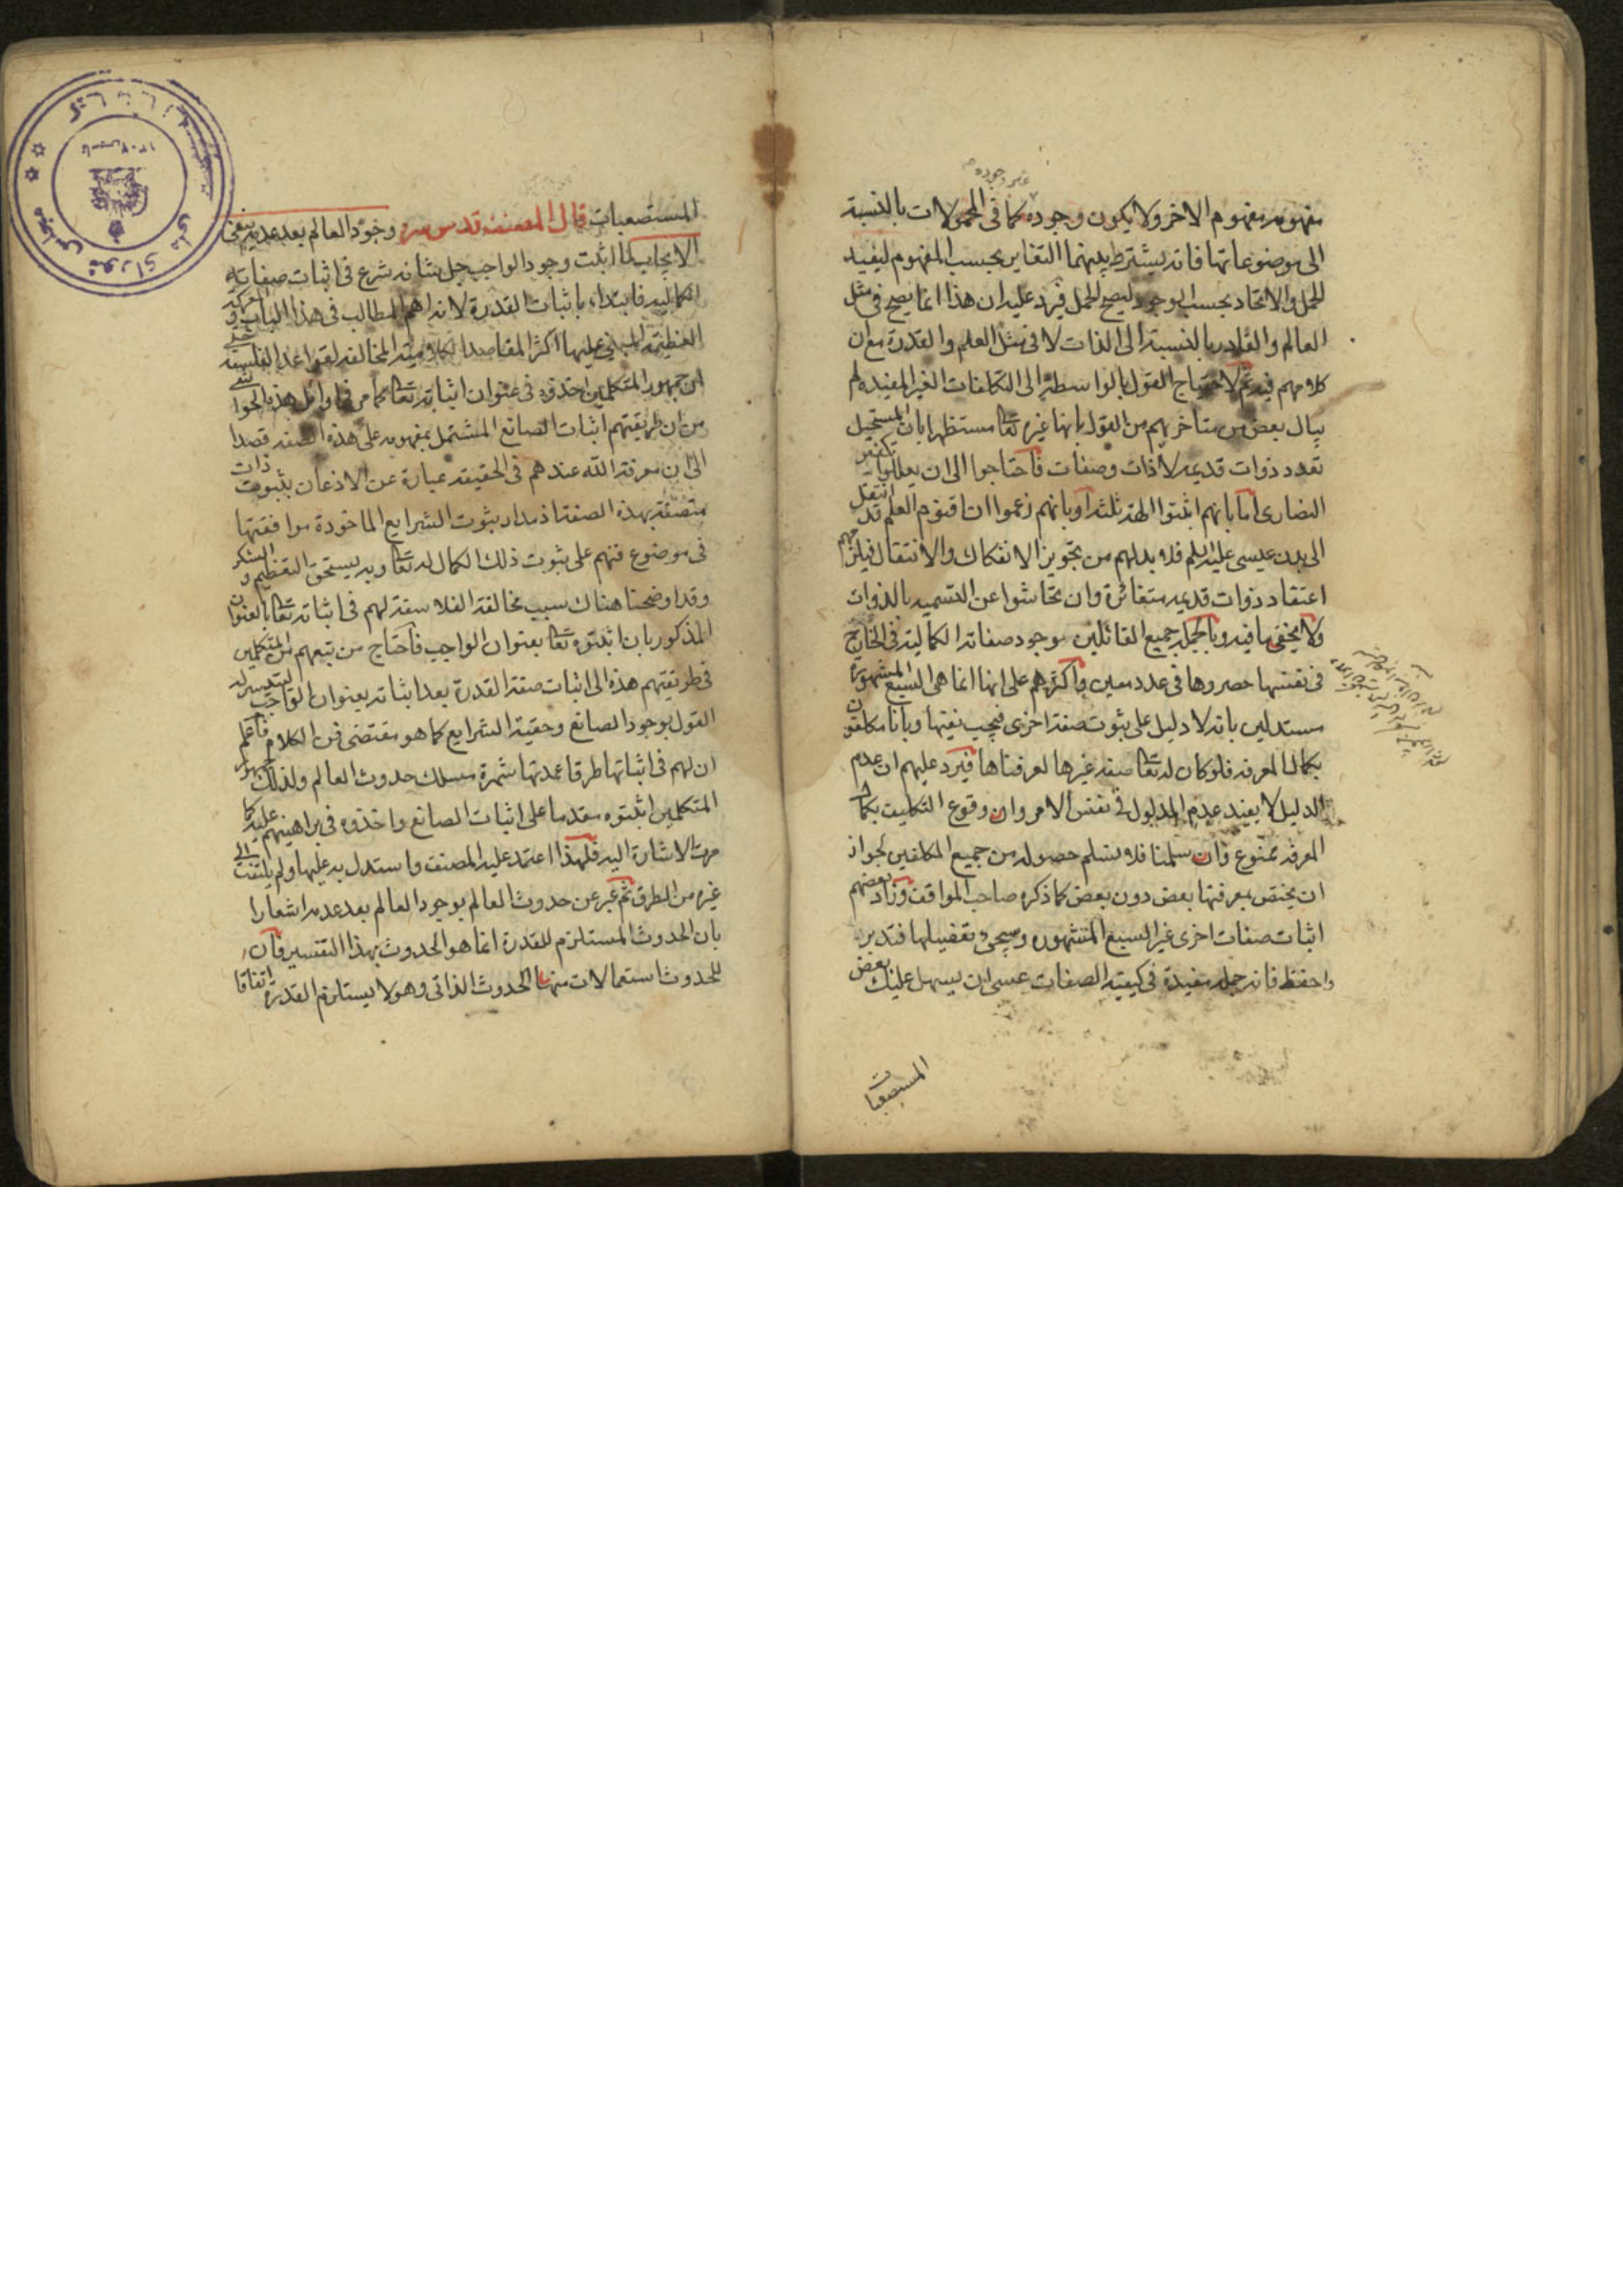 مفهومه مفهوم الاخر ولا يكون وجوده كما فى المحمولات بالنسبة
غير وجوده
الى موضوعاتها فانه يشترط بينهما التغاير بحسب المفهوم ليفيد
الحمل والاتحاد بحسب الوجود ليصح الحمل فيرد عليه ان هذا انما يصح فى مثل
العالم والقادر بالنسبة الى الذات لا فى مثل العلم والقدرة مع ان
كلامهم فيه ثم لاحتياج القول بالواسطة الى التكلفات الغير المفيده لم
يبال بعض من متاخريهم من القول بانها غيره تعا مستظهرا بان المستحيل
تعدد ذوات قديمه لا ذات وصفات فاحتاجوا الى ان يعللوا تكفير
النصارى اما بانهم اثبتوا الهة ثلثه او بانهم زعموا ان اقنوم العلم قد انتقل
الى بدن عيسى عليه السلم فلا بد لهم من تجويز الانفكاك والانتقال فيلزمهم
اعتقاد ذوات قديمه متغائرة وان تحاشوا عن التسميه بالذوات
ولا يخفى ما فيه وبالجمله جميع القائلين بوجود صفاته الكماليه فى الخارج
فى نفسها حصروها فى عدد معين واكثرهم على انها انما هى السبع المشهورة
مستدلين بانه لا دليل على ثبوت صفة اخرى فيجب نفيها وبانا مكلفون
بكمال المعرفه فلو كان له تعا صفه غيرها لعرفناها فيرد عليهم ان عدم
الدليل لا يفيد عدم المدلول فى نفس الامر وان وقوع التكليف بكمال
المعرفه ممنوع وان سلمنا فلا نسلم حصوله من جميع المكلفين لجواز
ان يختص بمعرفتها بعض دون بعض كما ذكره صاحب المواقف وزاد بعضهم
اثبات صفات اخرى غير السبع المشهوره وسيجئ تفصيلها فتدبر
واحفظ فانه جمله مفيدة فى كيفية الصفات عسى ان يسهل عليك بعض
المستصعبات
المستصعبات قال المصنف قدس سره وجود العالم بعد عدمه ينفى
الايجاب لما اثبت وجود الواجب جل شانه شرع فى اثبات صفاته
الكماليه فابتداء باثبات القدرة لانه اهم المطالب فى هذا الباب و
العظيمه المبنى عليها اكثر المقاصد الكلاميه المخالفه لقواعد الفلسفه
ان جمهور المتكلمين اخذوه فى عنوان اثباته تعا كما مر فى اوائل هذه الحواشى
من ان طريقتهم اثبات الصانع المشتمل بمفهومه على هذه الصفه قصدا
الى ان معرفة الله عندهم فى الحقيقه عبارة عن الاذعان بثبوت ذات
متصفة بهذه الصفة اذ مدار ثبوت الشرايع الماخودة موافقتها
فى موضوع فنهم على ثبوت ذلك الكمال له تعا وبه يستحق التعظيم والشكر
وقد اوضحنا هناك سبب مخالفة الفلاسفة لهم فى اثباته تعا بالعنوان
المذكور بان اثبتوه تعا بعنوان الواجب فاحتاج من تبعهم من المتكلمين
فى طريقتهم هذه الى اثبات صفة القدرة بعد اثباته بعنوان الواجب ليتيسر له
القول بوجود الصانع وحقية الشرايع كما هو مقتضى فن الكلام فاعلم
ان لهم فى اثباتها طرقا عمدتها شهرة مسلك حدوث العالم ولذلك جمهور
المتكلمين اثبتوه مقدما على اثبات الصانع واخذوه فى براهينهم عليه كما
مرت الاشارة اليه فلهذا اعتمد عليه المصنف واستدل به عليها ولم يلتفت الى
غيره من الطرق ثم عبر عن حدوث العالم بوجود العالم بعد عدمه اشعارا
بان الحدوث المستلزم للقدرة انما هو الحدوث بهذا التفسير فان
للحدوث استعمالات منها الحدوث الذاتى وهو لا يستلزم القدرة اتفاقا